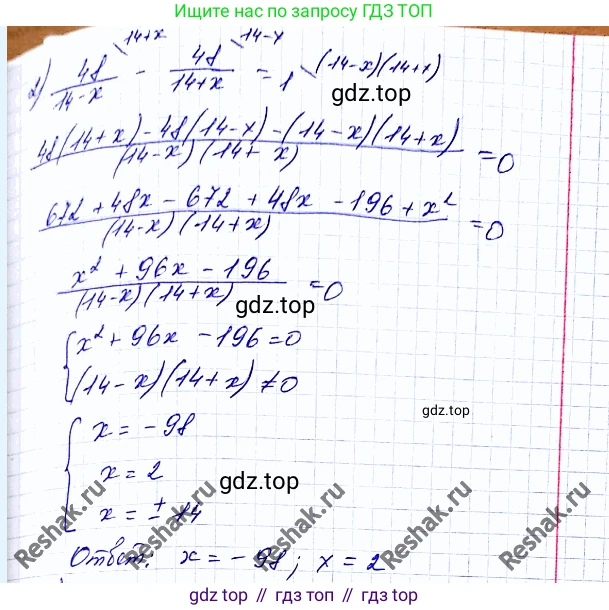 Ищите нас по запросу ГДЗ ТОП
14+x 14-x
2) 48/(14-x) - 48/(14+x) = 1 (14-x)(14+x)
гдз.top
(48(14+x)-48(14-x)-(14-x)(14+x))/((14-x)(14+x)) = 0
(672+48x-672+48x-196+x²)/((14-x)(14+x)) = 0
(x²+96x-196)/((14-x)(14+x)) = 0
гдз.top
{ x²+96x-196=0
(14-x)(14+x)≠0
гдз.top
{ x=-98
x=2
гдз.top
x=±14
Reshak.ru Reshak.ru Reshak.ru Reshak.ru
Ответ: x=-98; x=2
gdz.top // гдз.топ // gdz.top // гдз.топ